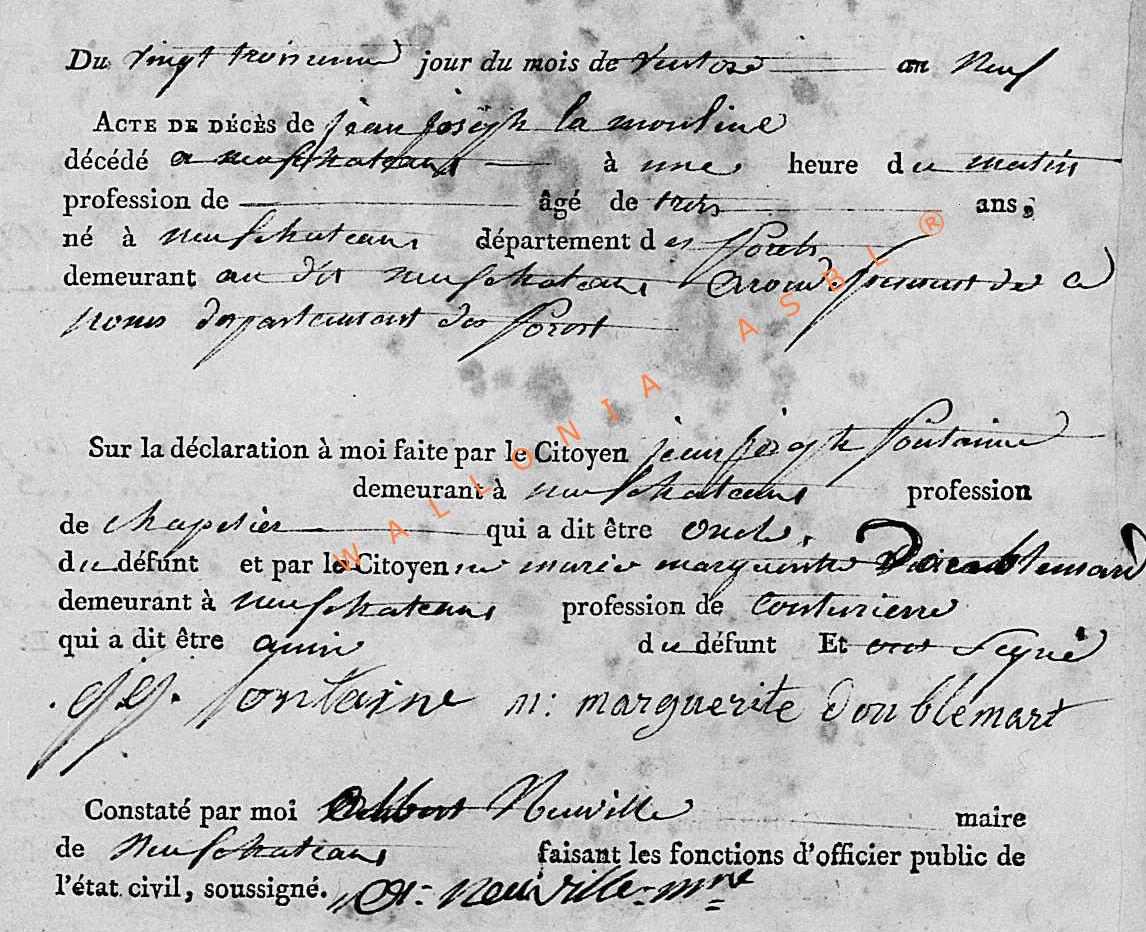 Du vingt troisieme jour du mois de ventose an neuf
ACTE DE DÉCÈS de jean joseph la mouline
décédé a neufchateau à une heure du matin
profession de âgé de trois ans,
né à neufchateau département des forets
demeurant au dit neufchateau
departement des foret
Sur la déclaration à moi faite par le Citoyen jean joseph fontaine
demeurant à neufchateau profession
de chapelier qui a dit être oncle
du défunt et par le Citoyenne marie marguerite Doublemard
demeurant à neufchateau profession de couturiere
qui a dit être amie du défunt Et ont signé
j j fontaine m: marguerite doublemart
Constaté par moi Neuville maire
de neufchateau faisant les fonctions d'officier public de
l'état civil, soussigné. Neuville m^re
WALLONIA ASBL ®